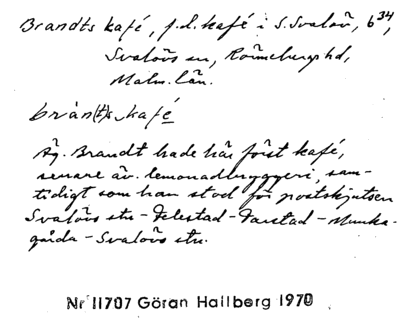 Brandts kafé, f.d. kafé i S. Svalöv, 6³⁴,
Svalövs sn, Rönnebergs hd,
Malm. län.
bràn(t)s kafé
Äg. Brandt hade här först kafé,
senare äv. lemonadbryggeri, sam-
tidigt som han stod för postskjutsen
Svalövs stn - Felestad - Tarstad - Munka-
gårda - Svalövs stn.
Nr 11707 Göran Hallberg 1970